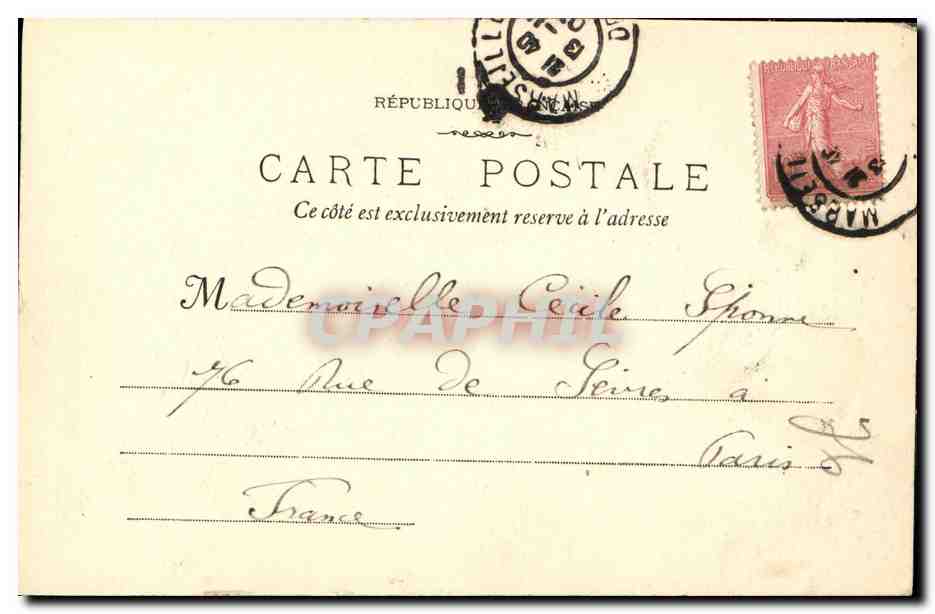 RÉPUBLIQUE FRANÇAISE
CARTE POSTALE
Ce côté est exclusivement reserve à l'adresse
Mademoiselle Cécile Sponne
CPAPHIL
76 Rue de Sèvres à
Paris
France
MARSEILLE
MARSEILL